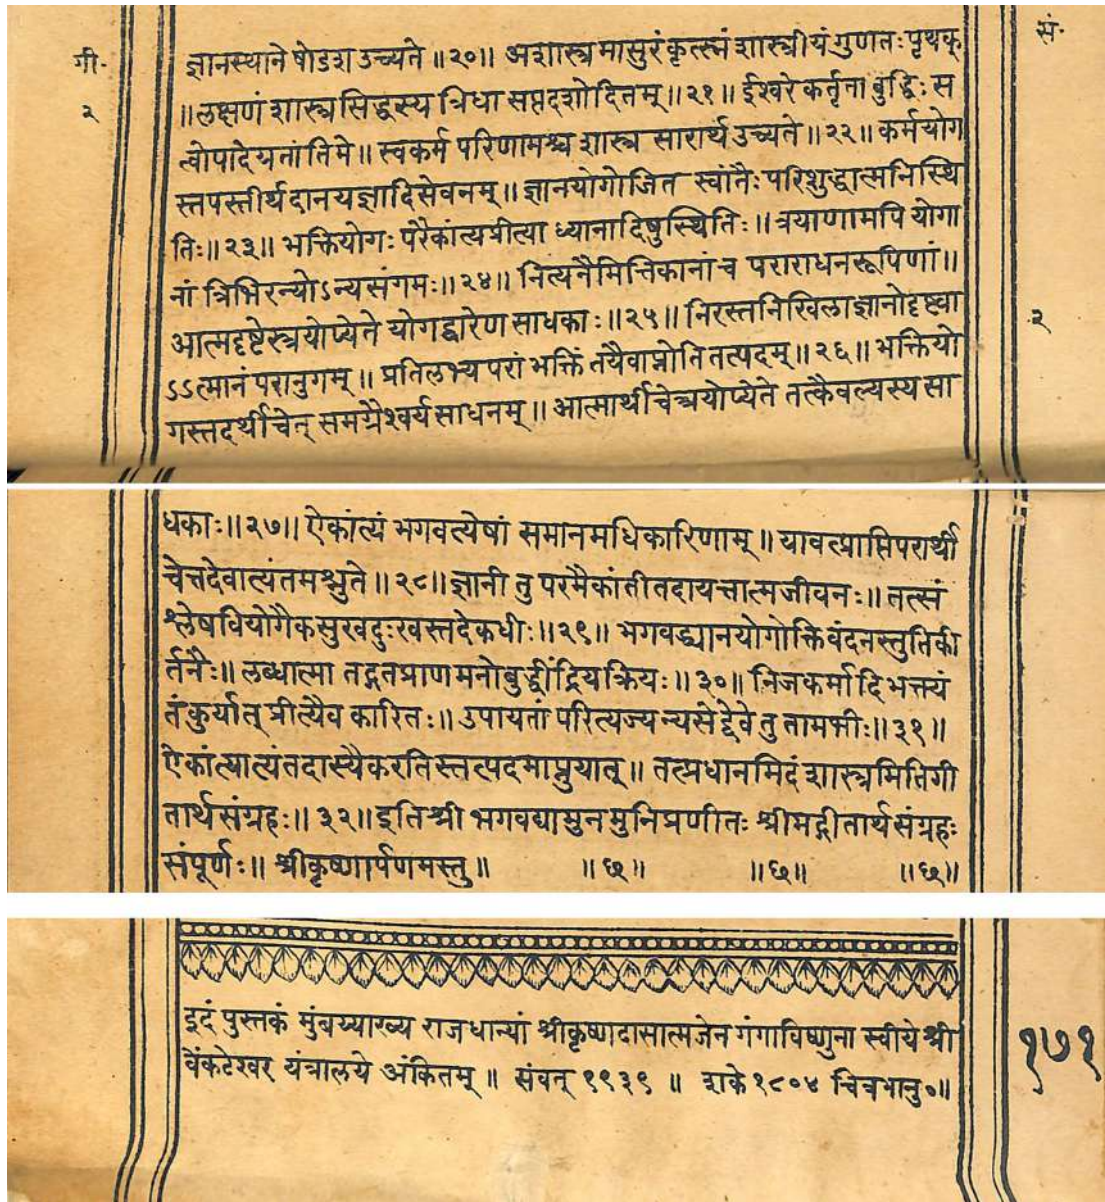 गी॰
२
सं॰
ज्ञानस्थाने षोडश उच्यते ॥२०॥ अशास्त्रमासुरंकृत्स्नं शास्त्रीयंगुणतःपृथक्
॥लक्षणं शास्त्रसिद्धस्य त्रिधा सप्तदशोदितम् ॥२१॥ ईश्वरेकर्तृता बुद्धिः स
त्वोपादेयतांतिमे ॥ स्वकर्म परिणामश्च शास्त्र सारार्थ उच्यते ॥२२॥ कर्मयोग
स्तपस्तीर्थदानयज्ञादिसेवनम् ॥ ज्ञानयोगोजित स्वांतैः परिशुद्धात्मनिस्थि
तिः॥२३॥ भक्तियोगः परैकांत्यप्रीत्या ध्यानादिषुस्थितिः ॥ त्रयाणामपि योगा
नां त्रिभिरन्योऽन्यसंगमः॥२४॥ नित्यनैमित्तिकानांच पराराधनरूपिणां॥
आत्मदृष्टेस्त्रयोप्येते योगद्वारेण साधकाः॥२५॥ निरस्तनिखिलाज्ञानोदृष्ट्वा
ऽऽत्मानं परानुगम् ॥ प्रतिलभ्य परां भक्तिं तयैवाप्नोति तत्पदम्॥२६॥ भक्तियो
गस्तदर्थीचेत् समग्रैश्वर्यसाधनम् ॥ आत्मार्थीचेत्त्रयोप्येते तत्कैवल्यस्य सा
२
धकाः॥२७॥ ऐकांत्यं भगवत्येषां समानमधिकारिणाम् ॥ यावत्प्राप्तिपरार्थी
चेत्तदेवात्यंतमश्नुते ॥२८॥ज्ञानी तु परमैकांतीतदायत्तात्मजीवनः॥ तत्सं
श्लेषवियोगैकसुखदुःखस्तदेकधीः॥२९॥ भगवद्ध्यानयोगोक्तिवंदनस्तुतिकी
र्तनैः॥ लब्धात्मा तद्गतप्राणमनोबुद्धींद्रियक्रियः॥३०॥ निजकर्मादिभक्त्यं
तंकुर्यात् प्रीत्यैव कारितः॥ उपायतां परित्यज्य न्यसेद्देवे तु तामभीः॥३१॥
ऐकांत्यात्यंतदास्यैकरतिस्तत्पदमाप्नुयात् ॥ तत्प्रधानमिदं शास्त्रमितिगी
तार्थसंग्रहः॥३२॥इतिश्री भगवद्यामुनमुनिप्रणीतः श्रीमद्गीतार्थसंग्रहः
संपूर्णः॥ श्रीकृष्णार्पणमस्तु॥ ॥छ॥ ॥छ॥ ॥छ॥
इदं पुस्तकं मुंबय्याख्य राजधान्यां श्रीकृष्णदासात्मजेन गंगाविष्णुना स्वीये श्री
वेंकटेश्वर यंत्रालये अंकितम् ॥ संवत् १९३९ ॥ शके १८०४ चित्रभानु०॥
१७१